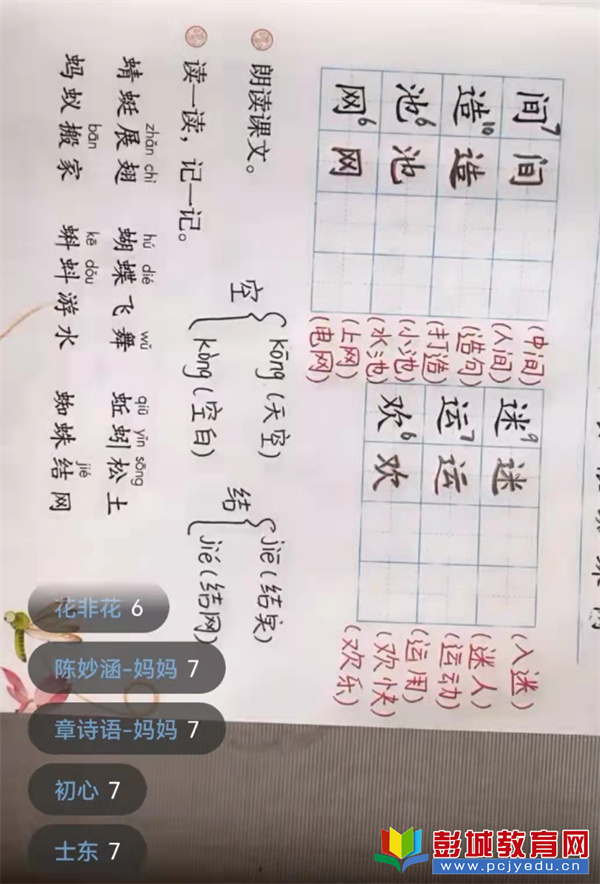 间7 间 (中间) (人间)
造10 造 (造句) (打造)
池6 池 (小池) (水池)
网6 网 (上网) (电网)
迷9 迷 (入迷) (迷人)
运7 运 (运动) (运用)
欢6 欢 (欢快) (欢乐)
朗读课文。
空 kōng (天空)
kòng (空白)
结 jiē (结实)
jié (结网)
读一读，记一记。
zhǎn chì hú dié wǔ qiū yǐn sōng
蜻蜓展翅 蝴蝶飞舞 蚯蚓松土
bān kē dǒu jié
蚂蚁搬家 蝌蚪游水 蜘蛛结网
花非花 6
陈妙涵-妈妈 7
章诗语-妈妈 7
初心 7
士东 7
彭城教育网
www.pcjyedu.cn